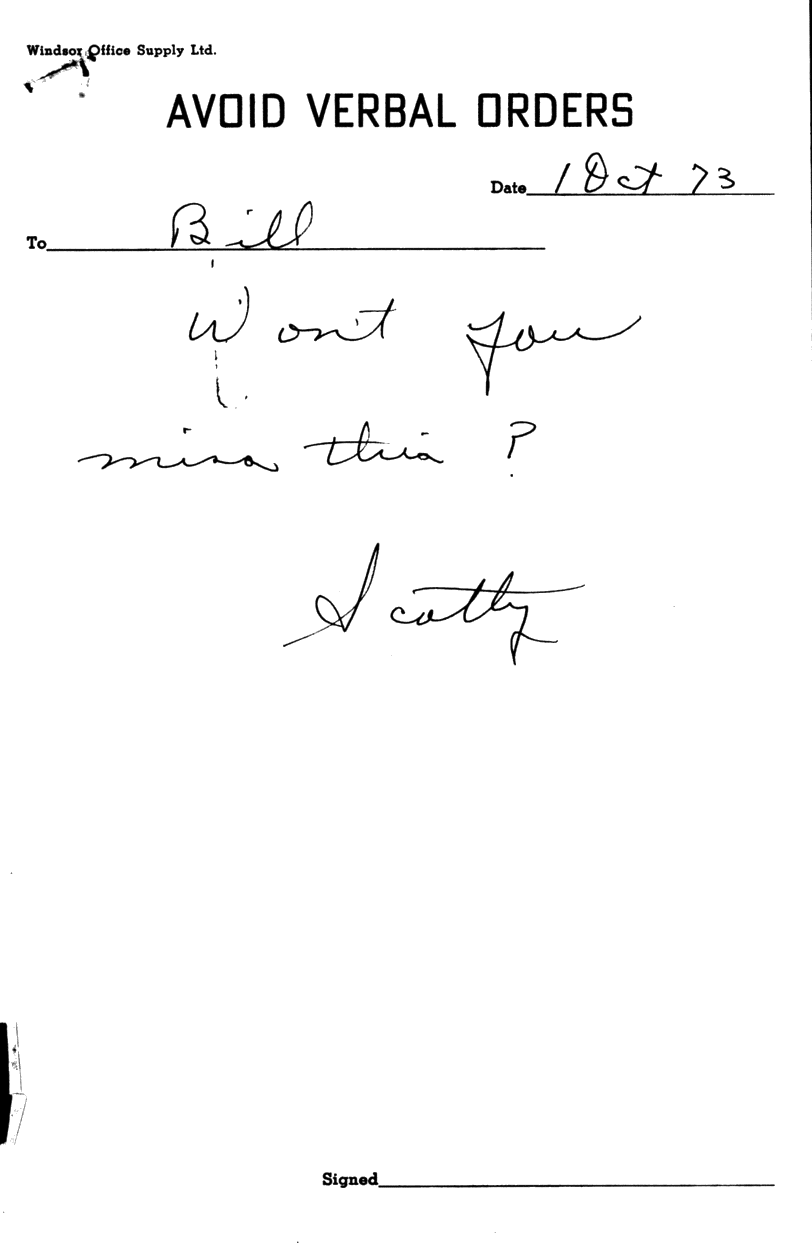 Windsor Office Supply Ltd.
AVOID VERBAL ORDERS
Date 1 Oct 73
To Bill
Won't you
miss this?
Scotty
Signed